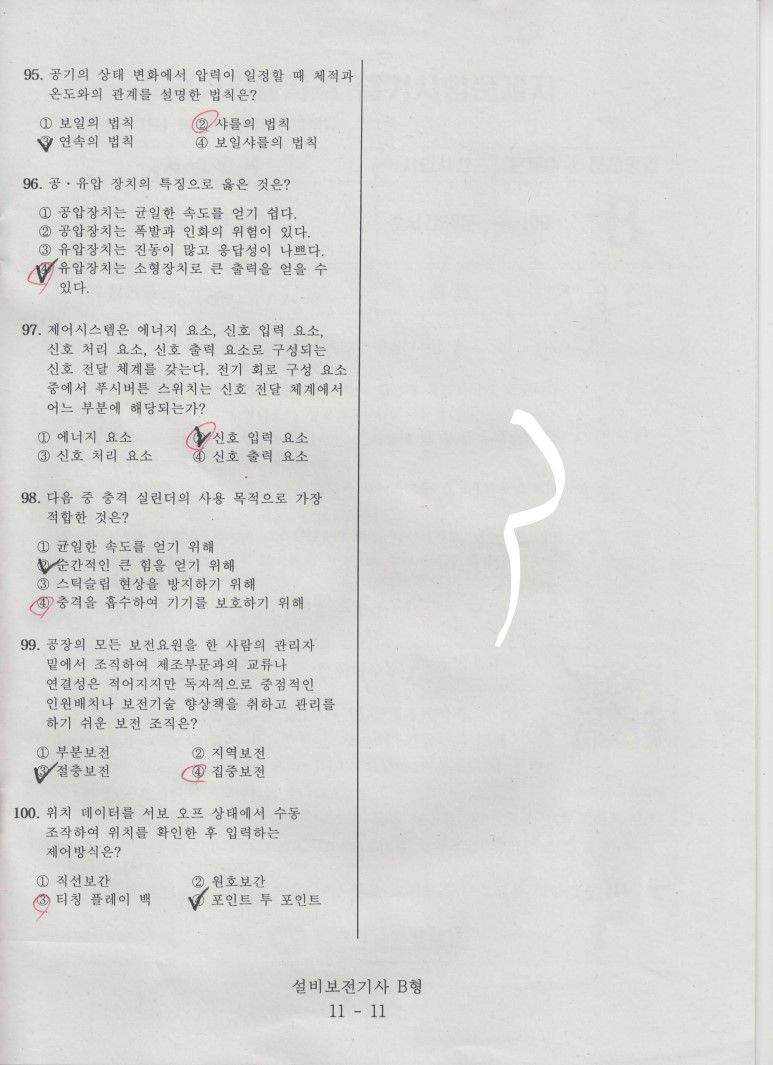 95. 공기의 상태 변화에서 압력이 일정할 때 체적과
온도와의 관계를 설명한 법칙은?
① 보일의 법칙 ② 샤를의 법칙
③ 연속의 법칙 ④ 보일샤를의 법칙
96. 공·유압 장치의 특징으로 옳은 것은?
① 공압장치는 균일한 속도를 얻기 쉽다.
② 공압장치는 폭발과 인화의 위험이 있다.
③ 유압장치는 진동이 많고 응답성이 나쁘다.
④ 유압장치는 소형장치로 큰 출력을 얻을 수
있다.
97. 제어시스템은 에너지 요소, 신호 입력 요소,
신호 처리 요소, 신호 출력 요소로 구성되는
신호 전달 체계를 갖는다. 전기 회로 구성 요소
중에서 푸시버튼 스위치는 신호 전달 체계에서
어느 부분에 해당되는가?
① 에너지 요소 ② 신호 입력 요소
③ 신호 처리 요소 ④ 신호 출력 요소
98. 다음 중 충격 실린더의 사용 목적으로 가장
적합한 것은?
① 균일한 속도를 얻기 위해
② 순간적인 큰 힘을 얻기 위해
③ 스틱슬립 현상을 방지하기 위해
④ 충격을 흡수하여 기기를 보호하기 위해
99. 공장의 모든 보전요원을 한 사람의 관리자
밑에서 조직하여 제조부문과의 교류나
연결성은 적어지지만 독자적으로 중점적인
인원배치나 보전기술 향상책을 취하고 관리를
하기 쉬운 보전 조직은?
① 부분보전 ② 지역보전
③ 절충보전 ④ 집중보전
100. 위치 데이터를 서보 오프 상태에서 수동
조작하여 위치를 확인한 후 입력하는
제어방식은?
① 직선보간 ② 원호보간
③ 티칭 플레이 백 ④ 포인트 투 포인트
설비보전기사 B형
11 - 11